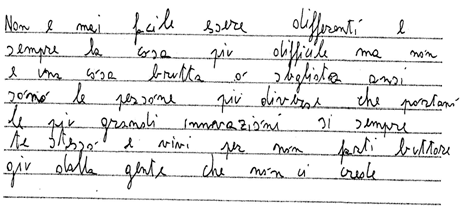 Non e mai facile essere differenti e
sempre la cosa piu difficile ma non
e una cosa brutta o sbagliata anzi
sono le persone piu diverse che portano
le piu grandi innovazioni sii sempre
te stesso e vivi per non farti buttare
giu dalla gente che non ci crede